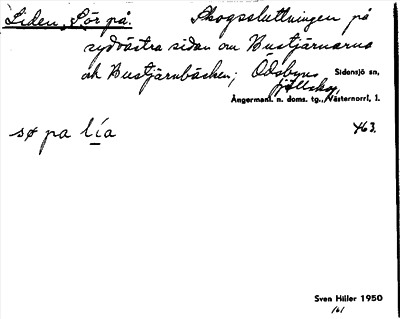 Liden, Sör på. Skogssluttningen på
sydvästra sidan om Bustjärnarna
och Bustjärnbäcken; Ödsbyns
fjällskog, Sidensjö sn,
Ångermanl. n. doms. tg., Västernorrl. l.
sø pa lía 463.
Sven Hiller 1950
161